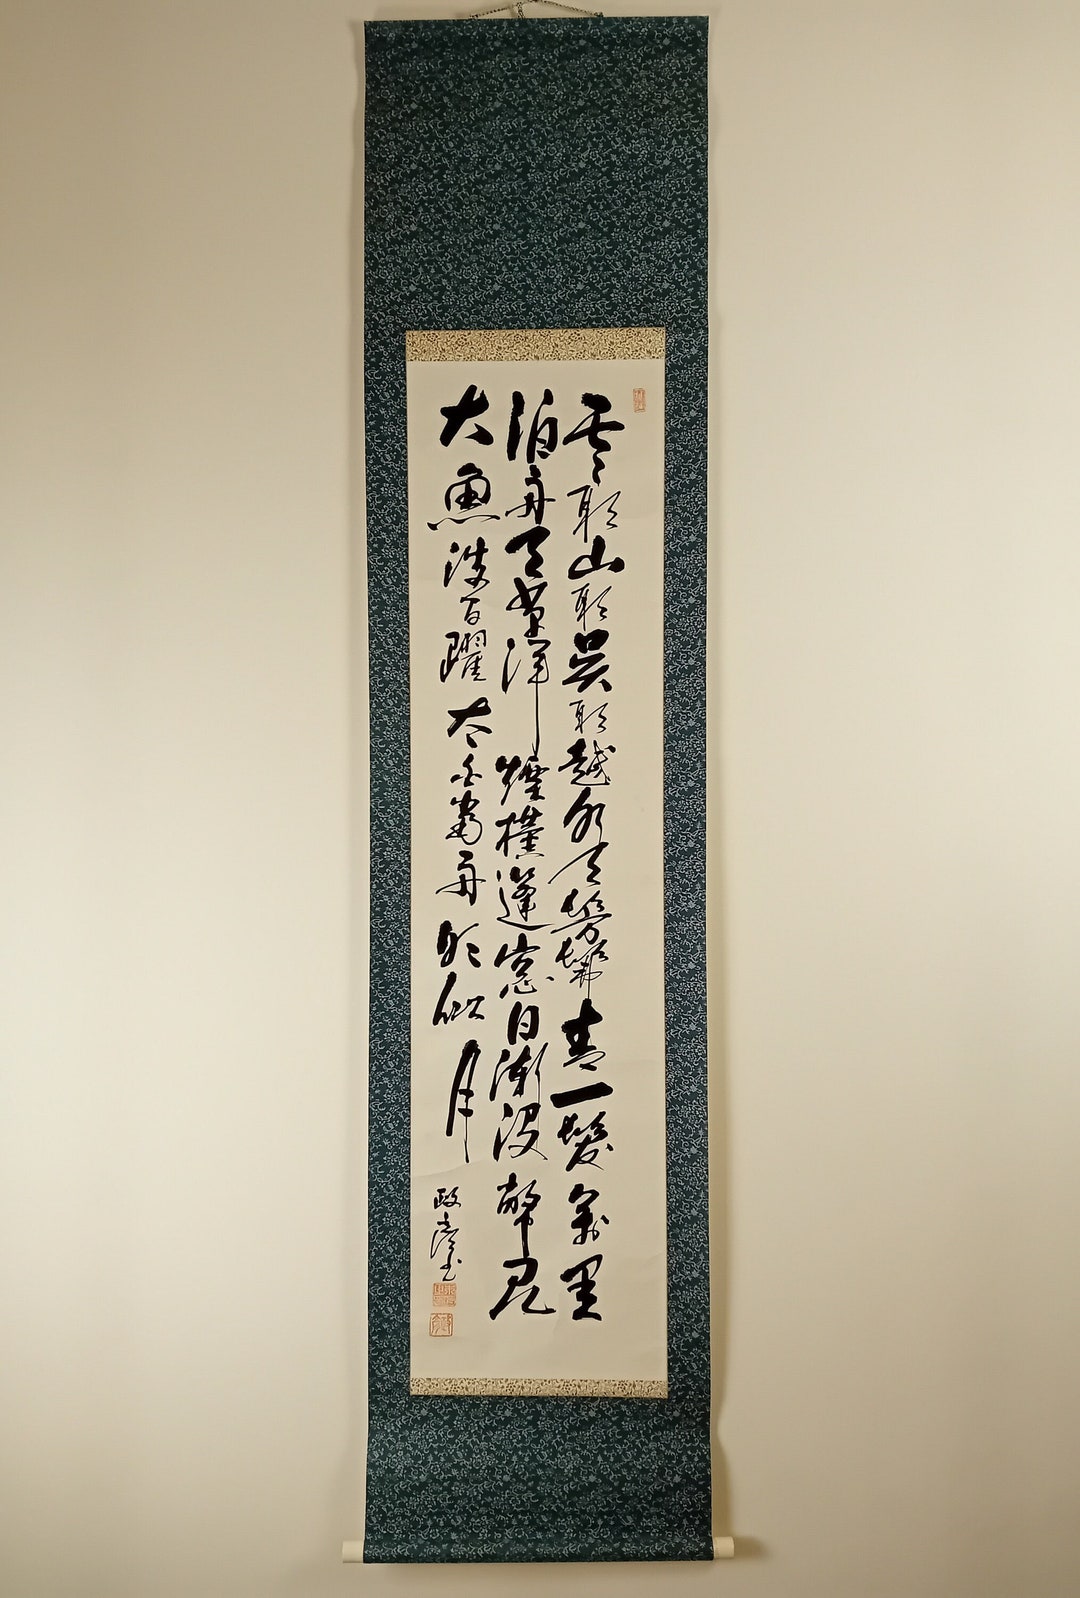 雲耶山耶呉耶越水天髣髴青一髪万里
泊舟天草洋煙横篷窓日漸没瞥見
大魚波間躍太白當舟明似月
政書